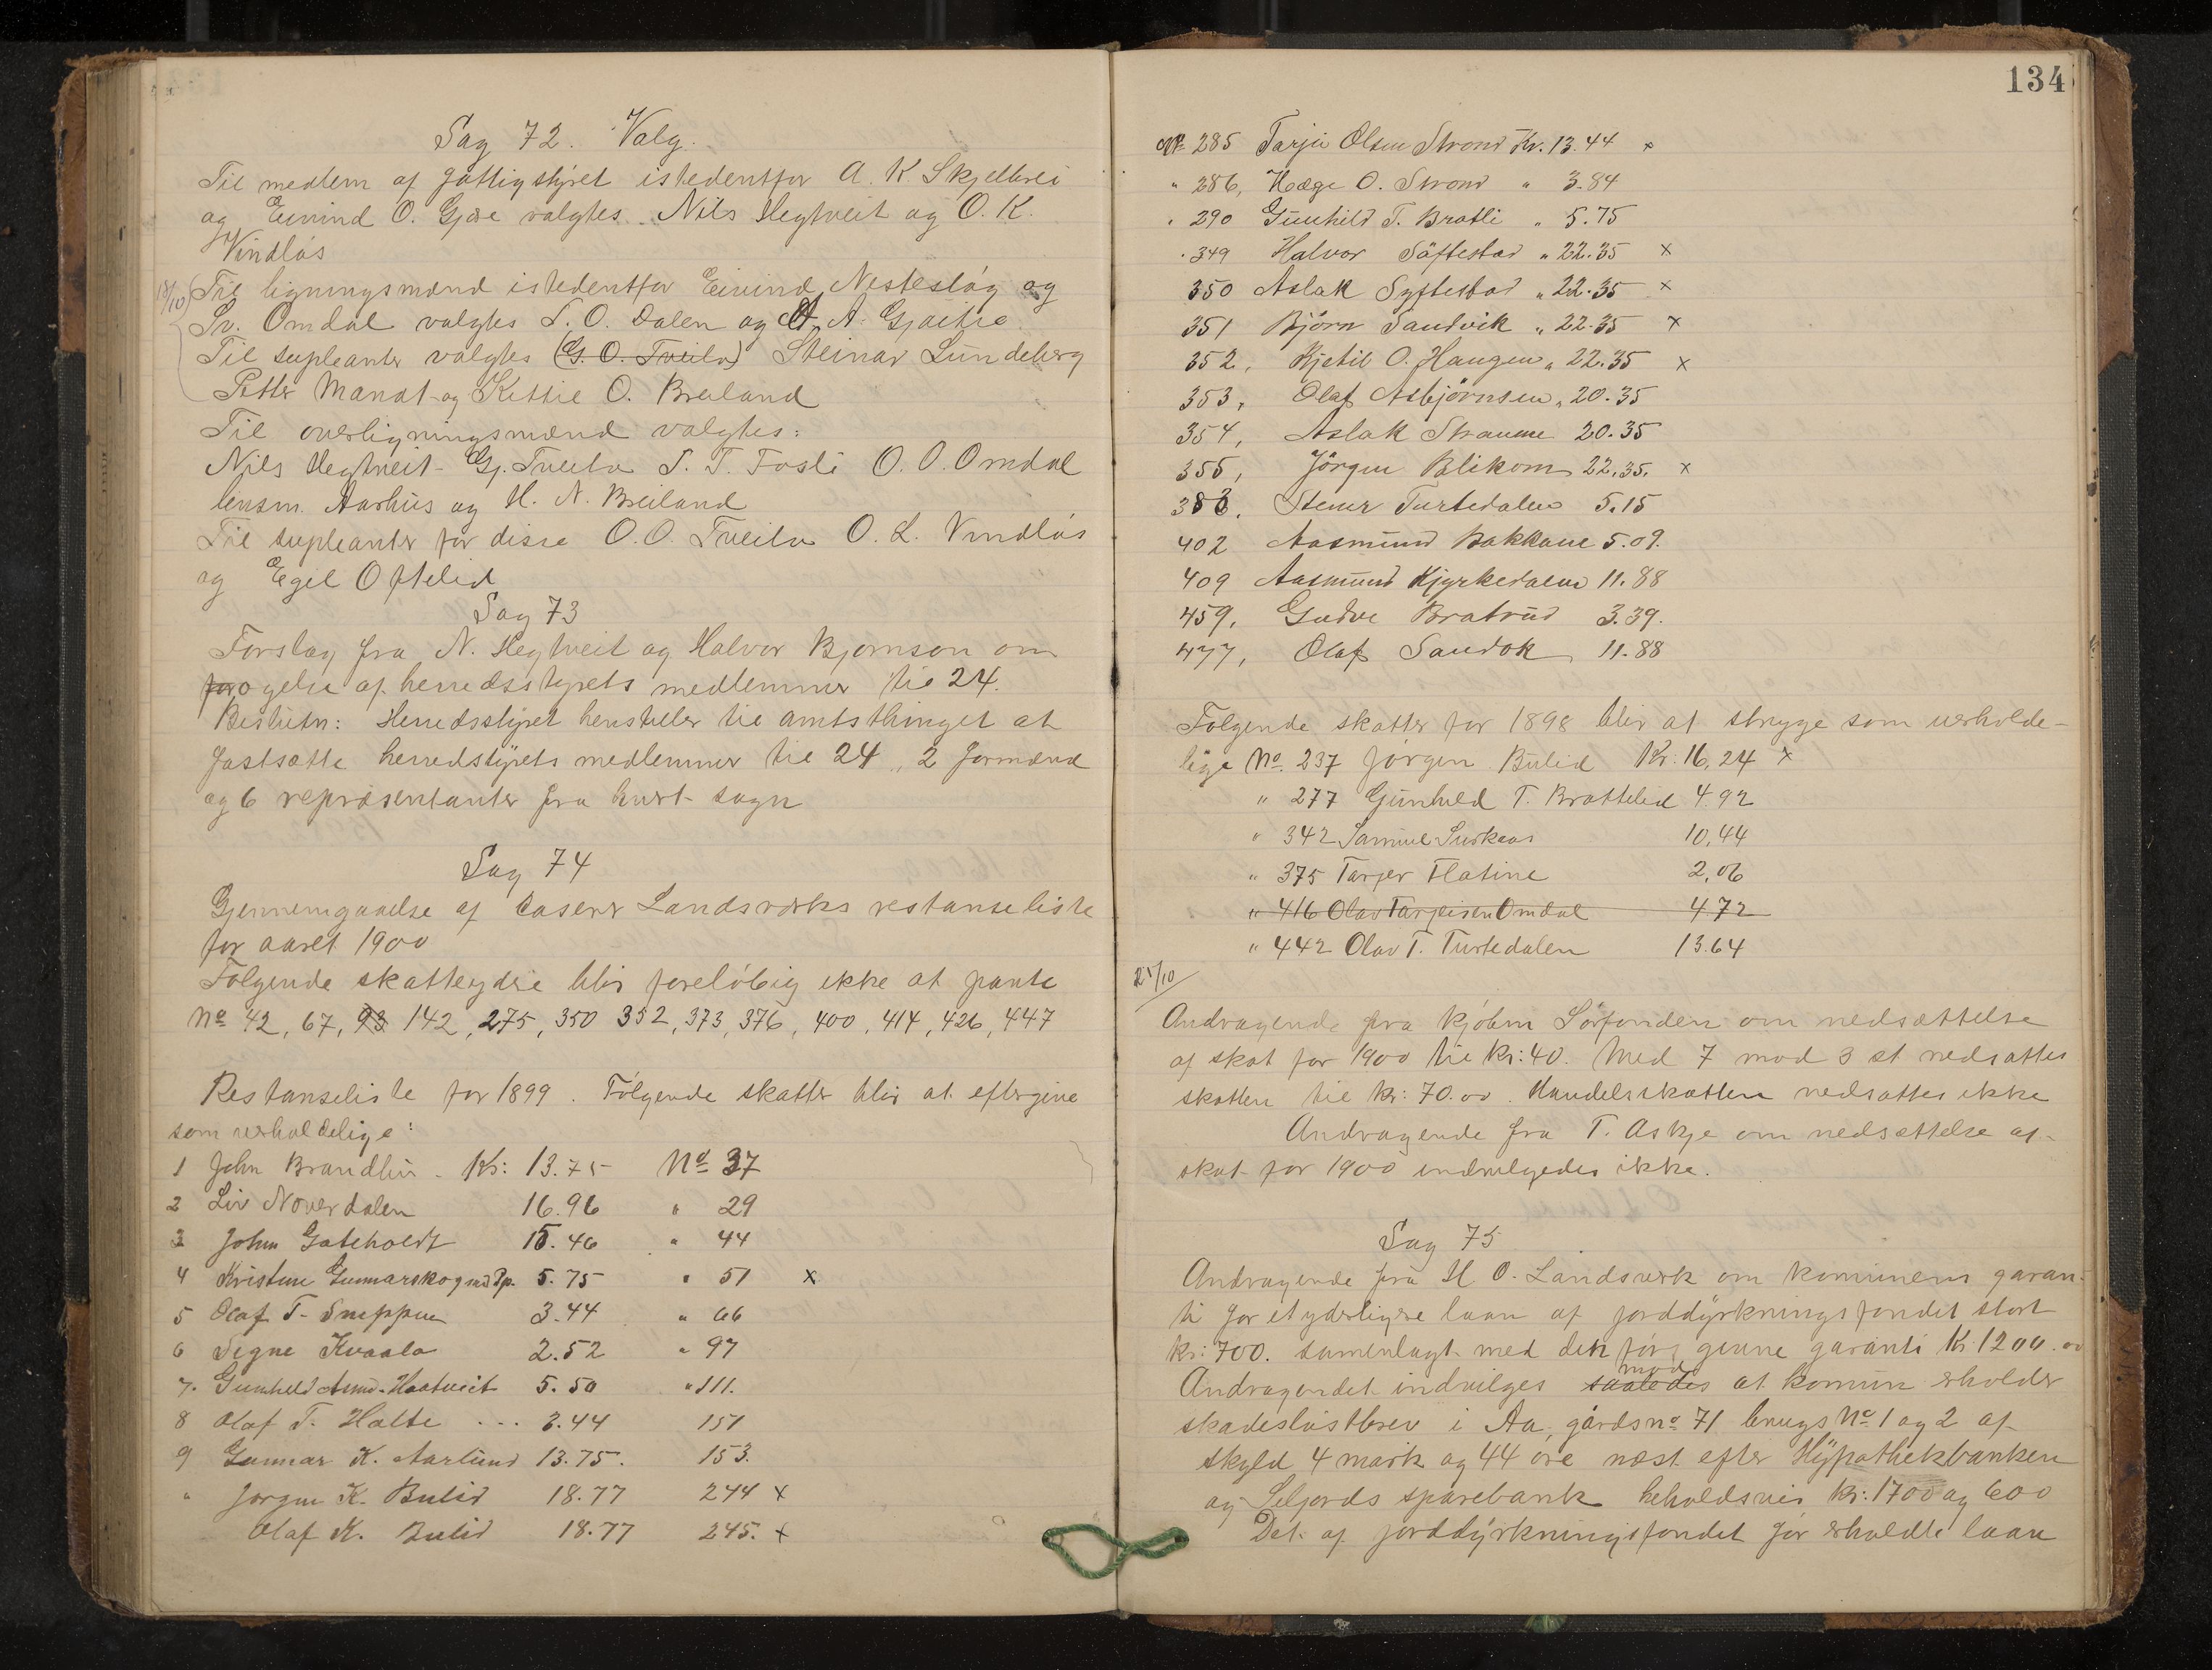 Sag 72. Valg.
Til medlem af fattigstyret istedentfor A. K. Skjelbrei
og Eivind O. Gjøse valgtes Nils Hegtveit og O. K.
Vindlås
18/10 Til ligningsmænd istedentfor Eivind Nesteslåg og
Sv. Omdal valgtes S. O. Dalen og A. Gjøitie
Til supleanter valgtes (G. O. Tveito) Steinar Lundeberg
Petter Mandt og Kittil O. Breiland
Til overligningsmænd valgtes:
Nils Hegtveit Gj. Tveito S. T. Fosli O. O. Omdal
lensm. Aarhus og H. N. Breiland
Til supleanter for disse O. O. Tveito O. L. Vindlås
og Egil Oftelid
Sag 73
Forslag fra N. Hegtveit og Halvor Bjørnson om
forøgelse af herredsstyrets medlemmer til 24.
Beslutn: Herredsstyret henstiller til amtsthinget at
fastsætte herredstyrets medlemmer til 24, 2 formænd
og 6 repræsentanter fra hvert sogn
Sag 74
Gjennemgaaelse af Caserer Landsverks restanseliste
for aaret 1900
Følgende skatteydere blir foreløbig ikke at pante
No 42, 67, 93 142, 275, 350 352, 373, 376, 400, 414, 426, 447
Restanseliste for 1899. Følgende skatter blir at eftergive
som uerholdelige:
1 John Brandlii Kr: 13.75 No 37
2 Liv Noverdalen 16.96 " 29
3 John Gateholdt 15.46 " 44
4 Kristine Gunnarskog 5.75 " 51 x
5 Olaf T. Sneppen 3.44 " 66
6 Signe Kvaala 2.52 " 97
7. Gunhild Haatveit 5.50 " 111.
8 Olaf T. Halte ... 3.44 151
9 Gunnar K. Aarlund 13.75. 153.
" Jørgen K. Bulid 18.77 244 x
Olaf K. Bulid 18.77 245. x
134
No 285 Tarjei Olsen Strond Kr. 13.44 x
" 286, Hæge O. Strond " 3.84
" 290 Gunhild T. Bratli " 5.75
" 349 Halvor Søftestad " 22.35 x
350 Aslak Syftestad " 22.35 x
351 Bjørn Sandvik " 22.35 x
352, Kjetil O. Haugen " 22.35 x
353, Olaf Asbjørnsen " 20.35
354, Aslak Straume 20.35
355, Jørgen Blikom 22.35. x
383. Steinr Turtedalen 5.15
402 Aasmund Bakkane 5.09.
409 Aasmund Kjyrkedalen 11.88
459, Gudve Bratrud 3.39.
477, Olaf Sandok 11.88
Følgende skatter for 1898 blir at stryge som uerholde-
lige No. 237 Jørgen Bulid Kr: 16,24 x
" 277 Gunhild T. Brattelid 4.92
" 342 Samuel 10,44
" 375 Tarjer Flatine 2,06
" 416 Olav Tarjeisen Omdal 4.72
" 442 Olav T. Turtedalen 13.64
21/10
Andragende fra Kjøbm Sørfonden om nedsættelse
af skat for 1900 til Kr: 40. Med 7 mod 3 st nedsattes
skatten til Kr: 70.00. Handelsskatten nedsattes ikke
Andragende fra T. Askje om nedsættelse af
skat for 1900 indvilgedes ikke.
Sag 75
Andragende fra H. O. Landsverk om komunens garan-
ti for et yderligere laan af jorddyrkningsfondet stort
kr: 700. samenlagt med den før givne garanti Kr 1200.00
Andragendet indvilges saaledes mod at komun erholder
skadesløstbrev i Aa, gårdsno 71 brugs No 1 og 2 af
skyld 4 mark og 44 øre næst efter Hypothekbanken
og Seljords sparebank heholdsvis Kr: 1700 og 600
Det af jorddyrkningsfondet før erholdte laan